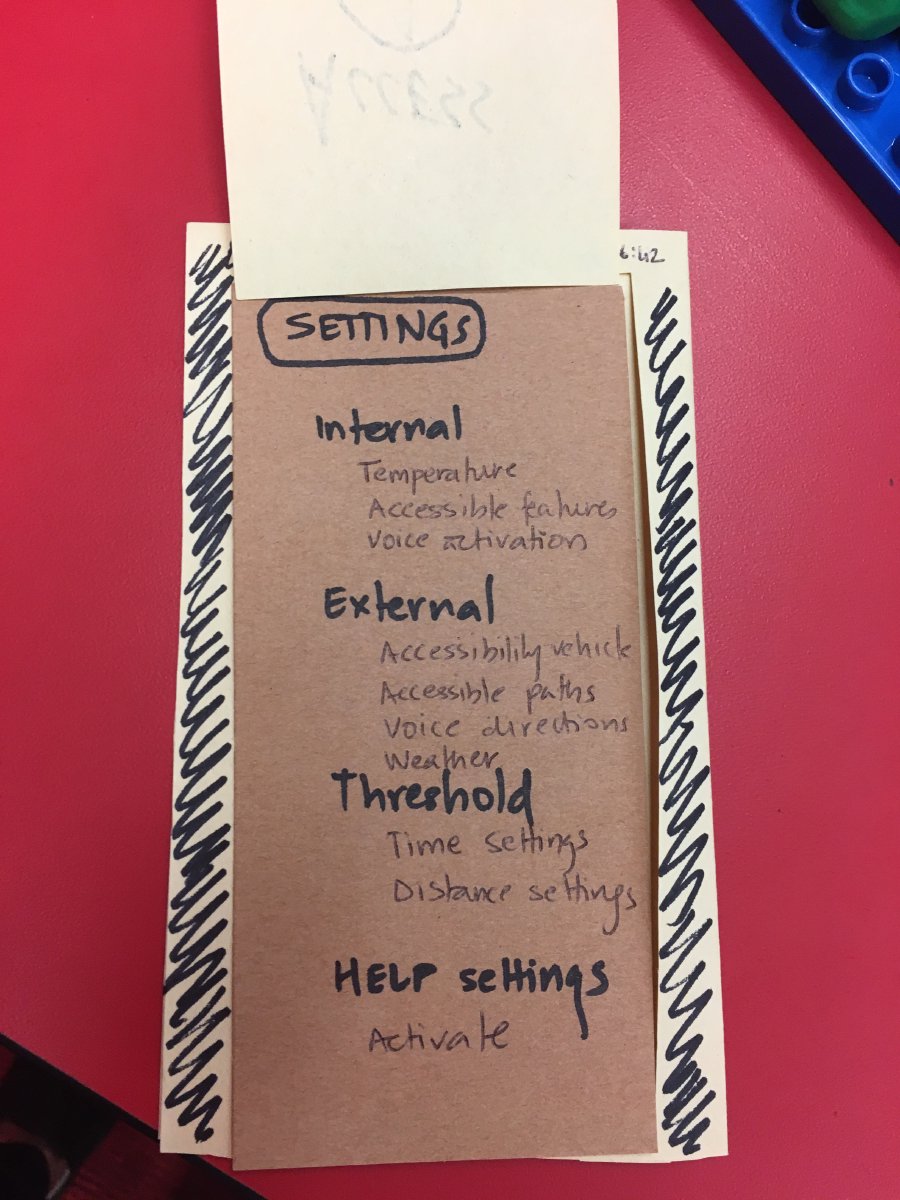 6:42
SETTINGS
Internal
Temperature
Accessible features
Voice activation
External
Accessibility vehicle
Accessible paths
Voice directions
Weather
Threshold
Time settings
Distance settings
HELP settings
Activate